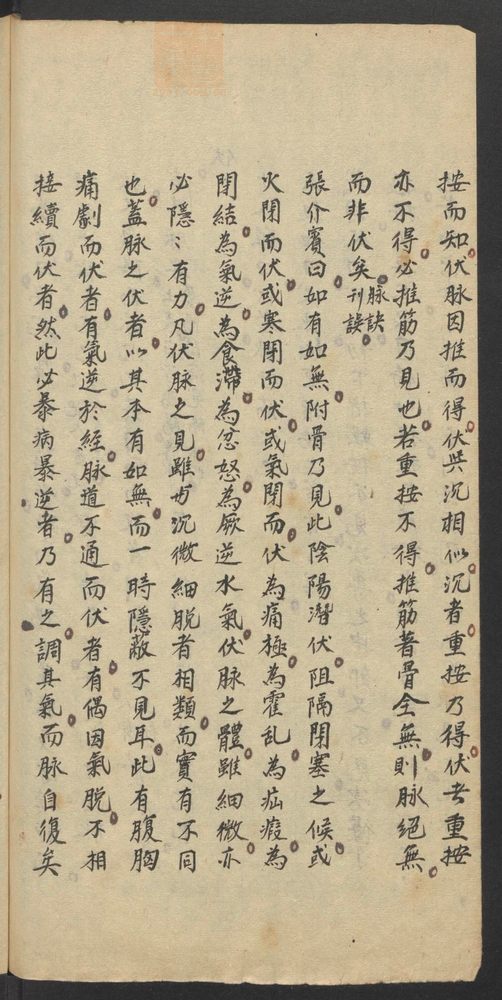 按而知伏脉因推而得伏與沉相似沉者重按乃得伏者重按
亦不得必推筋乃見也若重按不得推筋著骨全無則脉絕無
而非伏矣脉訣刊誤
張介賓曰如有如無附骨乃見此陰陽潛伏阻隔閉塞之候或
火閉而伏或寒閉而伏或氣閉而伏為痛極為霍乱為疝瘕為
閉結為氣逆為食滯為忿怒為厥逆水氣伏脉之體雖細微亦
必隱〻有力凡伏脉之見雖与沉微細脱者相類而實有不同
也蓋脉之伏者以其本有如無而一時隱蔽不見耳此有腹胸
痛劇而伏者有氣逆於經脉道不通而伏者有偶因氣脱不相
接續而伏者然此必暴病暴逆者乃有之調其氣而脉自復矣